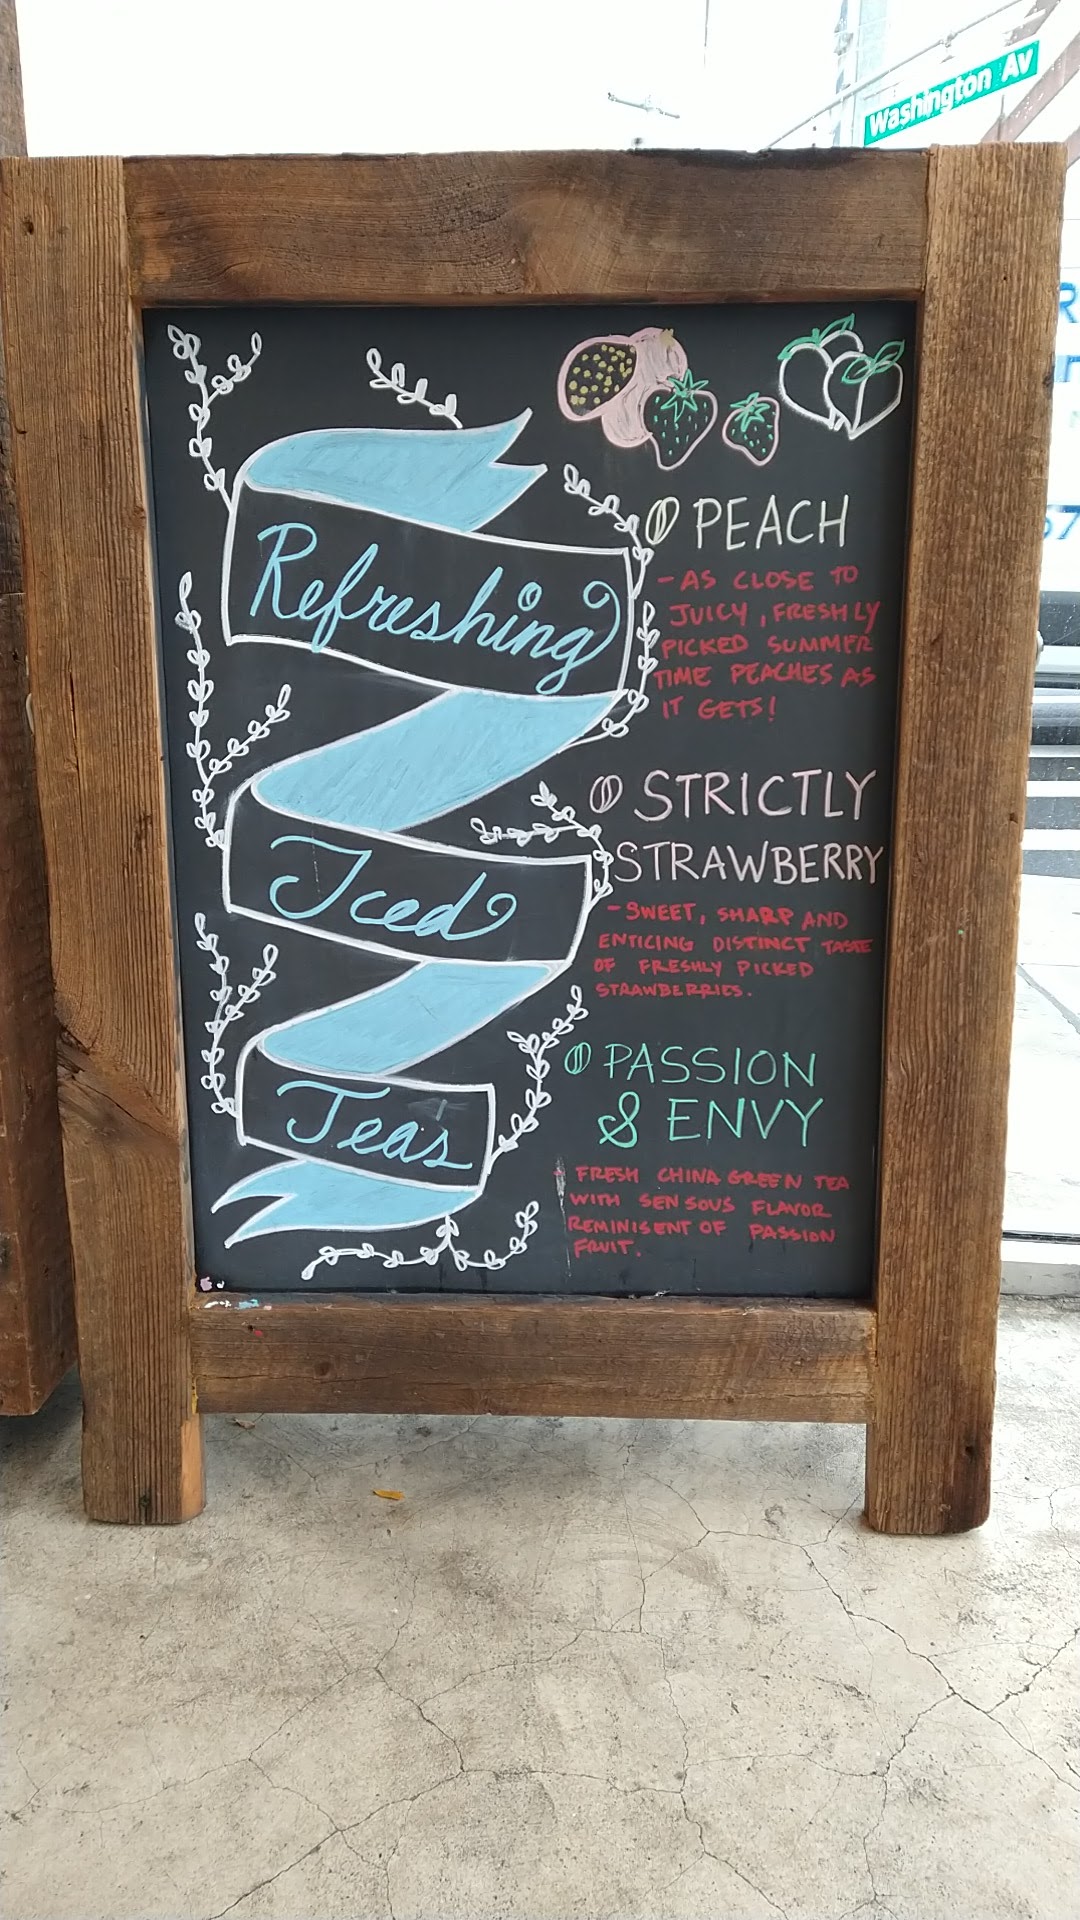 Washington Av
Refreshing
Iced
Teas
PEACH
- AS CLOSE TO
JUICY, FRESHLY
PICKED SUMMER
TIME PEACHES AS
IT GETS!
STRICTLY
STRAWBERRY
- SWEET, SHARP AND
ENTICING DISTINCT TASTE
OF FRESHLY PICKED
STRAWBERRIES.
PASSION
& ENVY
- FRESH CHINA GREEN TEA
WITH SENSOUS FLAVOR
REMINISENT OF PASSION
FRUIT.